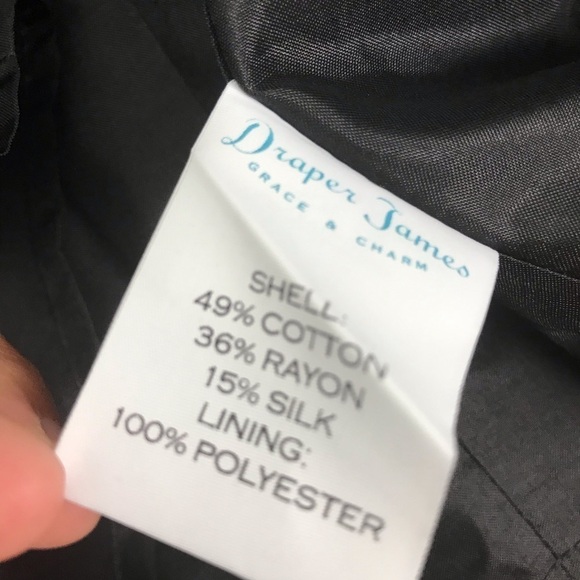 Draper James
GRACE & CHARM
SHELL:
49% COTTON
36% RAYON
15% SILK
LINING:
100% POLYESTER